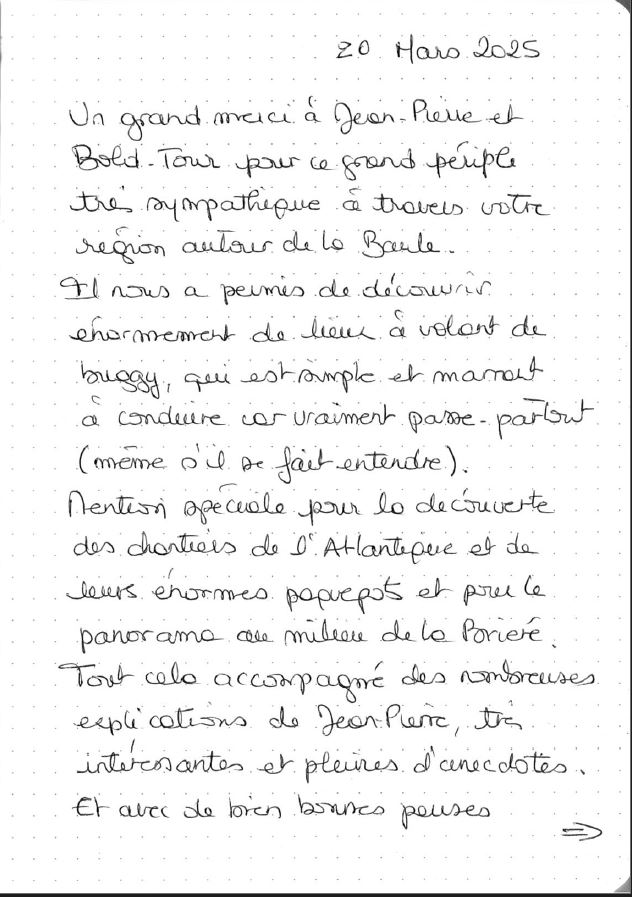 20 Mars 2025
Un grand merci à Jean-Pierre et
Bold-Tour pour ce grand périple
très sympathique à travers votre
région autour de la Baule.
Il nous a permis de découvrir
énormement de lieux à volant de
buggy, qui est simple et marrant
à conduire car vraiment passe-partout
(même s'il se fait entendre).
Mention spéciale pour la découverte
des chantiers de l'Atlantique et de
leurs énormes paquepots et pour le
panorama au milieu de la
Tout cela accompagné des nombreuses
explications de Jean-Pierre, très
intéressantes et pleines d'anecdotes.
Et avec de bien bonnes pauses
⇒